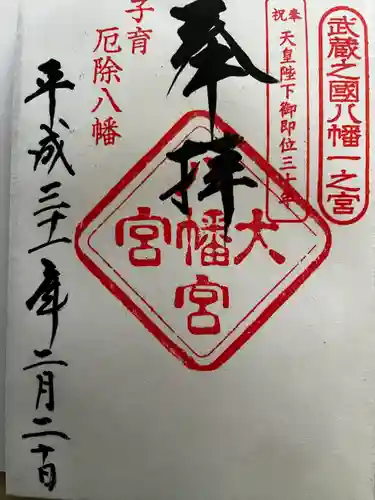 武蔵之國八幡一之宮
奉祝
天皇陛下御即位三十年
奉拝
大宮八幡宮
子育
厄除八幡
平成三十一年二月二十日